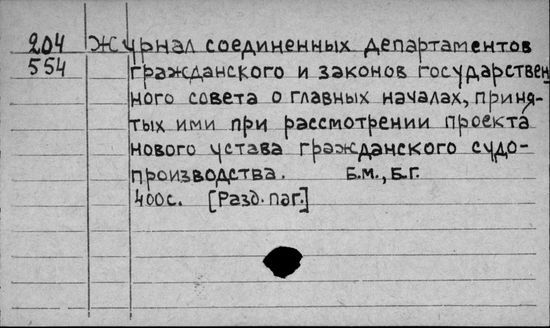 204 Журнал соединенных департаментов
554 гражданского и законов государствен
ного совета о главных началах, приня-
тых ими при рассмотрении проекта
нового устава гражданского судо-
производства. Б.м., Б.г.
400с. [Разд. паг.]